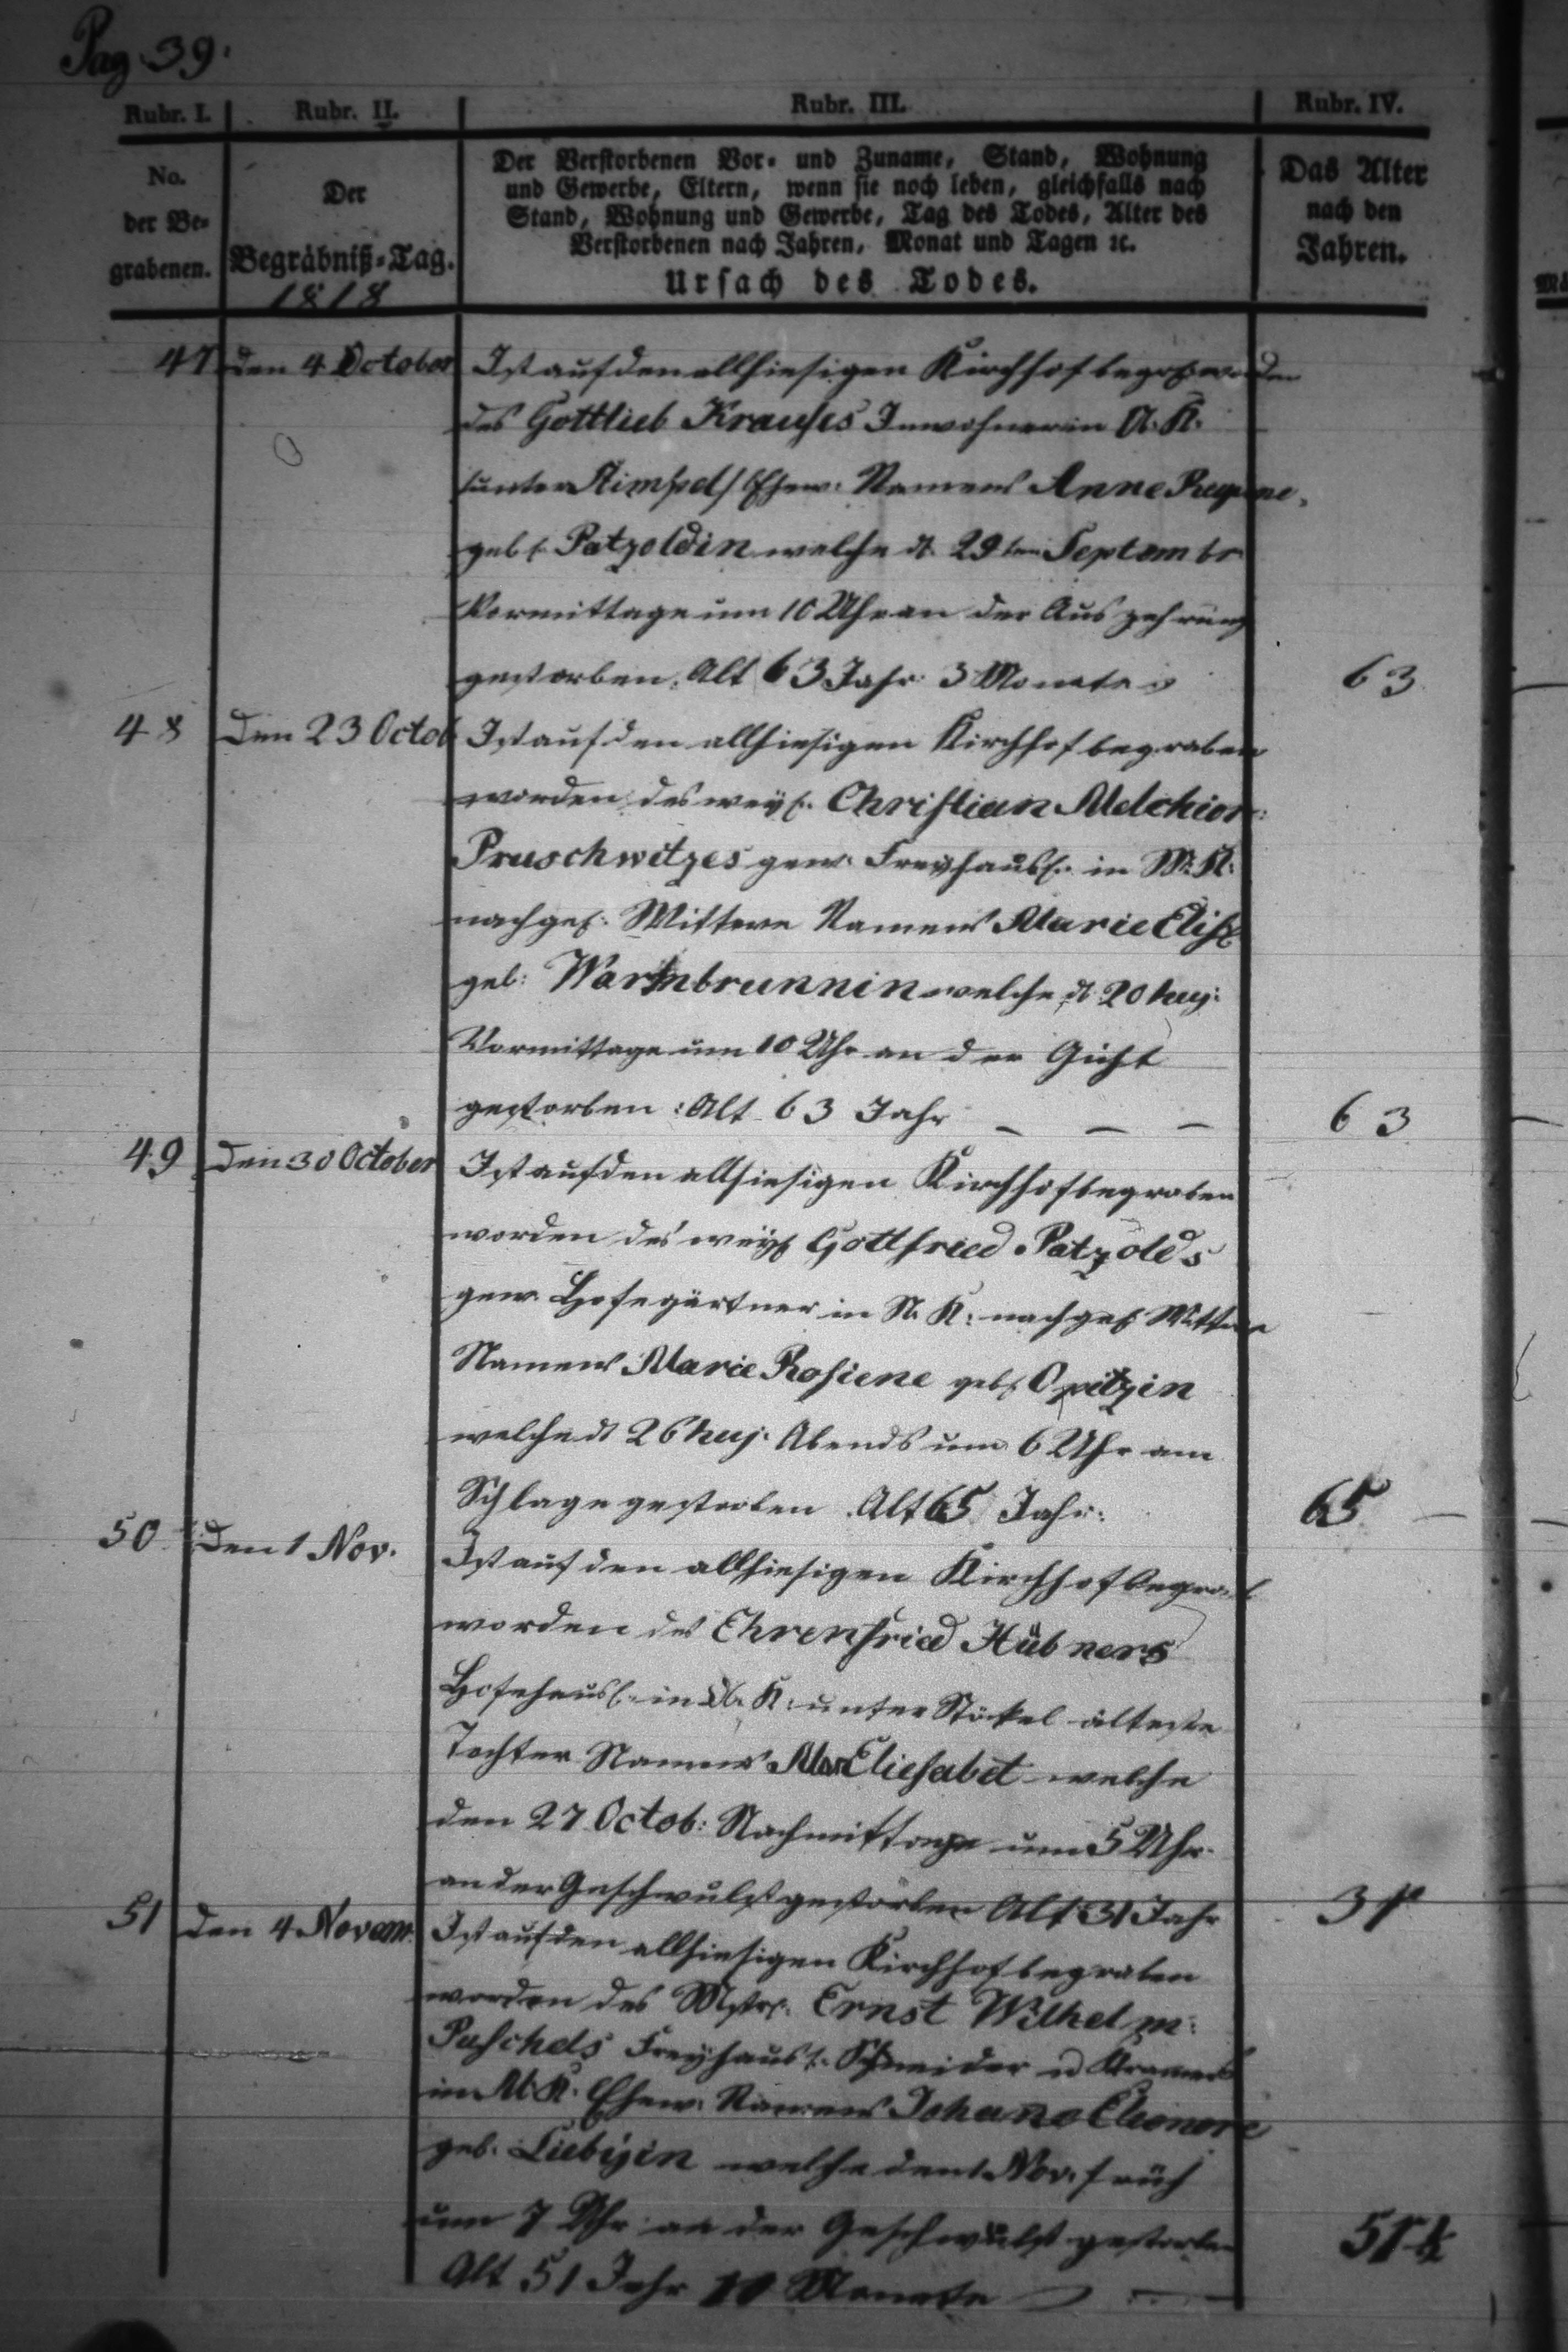 Pag. 39.
Rubr. I. Rubr. II. Rubr. III. Rubr. IV.
No. der Be- grabenen.
Der Begräbniß-Tag. 1818
Der Verstorbenen Vor- und Zuname, Stand, Wohnung
und Gewerbe, Eltern, wenn sie noch leben, gleichfalls nach
Stand, Wohnung und Gewerbe, Tag des Todes, Alter des
Verstorbenen nach Jahren, Monat und Tagen ꝛc.
Ursach des Todes.
Das Alter nach den Jahren.
47 den 4 October Ist auf den allhiesigen Kirchhof begr. worden
des Gottlieb Krauses Inwohner in N. K.
unter Ehew. Namens Anne Regine
geb. Patzoldin welche d. 29ten Septembr
Vormittage um 10 Uhr an der Auszehrung
gestorben. Alt 63 Jahr 3 Monate 63
48 Den 23 Octob Ist auf den allhiesigen Kirchhof begraben
worden des weyl. Christian Melchior
Pruschwitzes gew. Freyhausl. in M. K.
nachgel. Wittwe Namens Marie Elis.
geb. Warmbrunnin welche d. 20 huj.
Vormittage um 10 Uhr an der Gicht
gestorben: Alt 63 Jahr — — — 63
49 Den 30 October Ist auf den allhiesigen Kirchhof begraben
worden des weyl Gottfried Patzolds
gew. Hofegärtner in N. K. nachgel Wittwe
Namens Marie Rosiene geb. Opitzin
welche d 26 huj. Abends um 6 Uhr am
Schlage gestorben. Alt 65 Jahr. 65
50 Den 1 Nov. Ist auf den allhiesigen Kirchhof begrab
worden des Ehrenfried Hübners
Hofehausl. in K. unter Stökel älteste
Tochter Namens Mar Eliesabet welche
den 27 Octob: Nachmittage um 5 Uhr
an der Geschwulst gestorben Alt 31 Jahr 31
51 den 4 Novem. Ist auf den allhiesigen Kirchhof begraben
worden des Mstr. Ernst Wilhelm
Puschels Freyhausl. Schneider u Kramer
in M. K. Ehew. Namens Johane Eleonore
geb. Liebigin welche den 1 Nov. früh
um 7 Uhr an der Geschwulst gestorben
Alt 51 Jahr 10 Monate 51